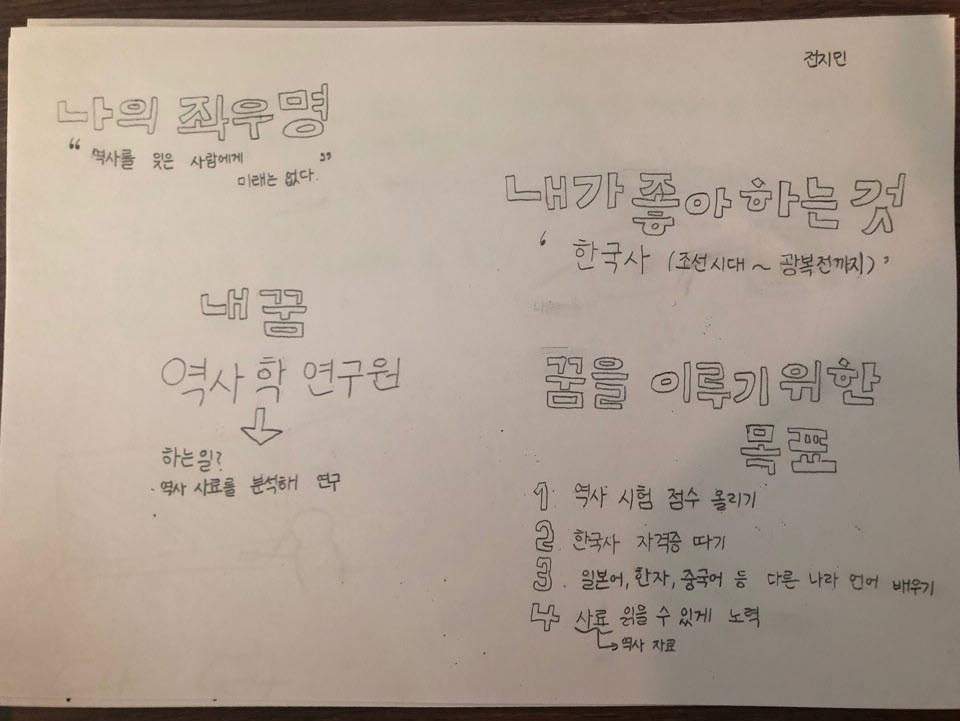 전지민
나의 좌우명
“ 역사를 잊은 사람에게
미래는 없다. ”
내가 좋아하는 것
‘ 한국사 (조선시대 ~ 광복전까지) ’
내 꿈
역사학 연구원
하는일?
· 역사 사료를 분석해 연구
꿈을 이루기 위한
목표
1. 역사 시험 점수 올리기
2. 한국사 자격증 따기
3. 일본어, 한자, 중국어 등 다른 나라 언어 배우기
4 사료 읽을 수 있게 노력
역사 자료